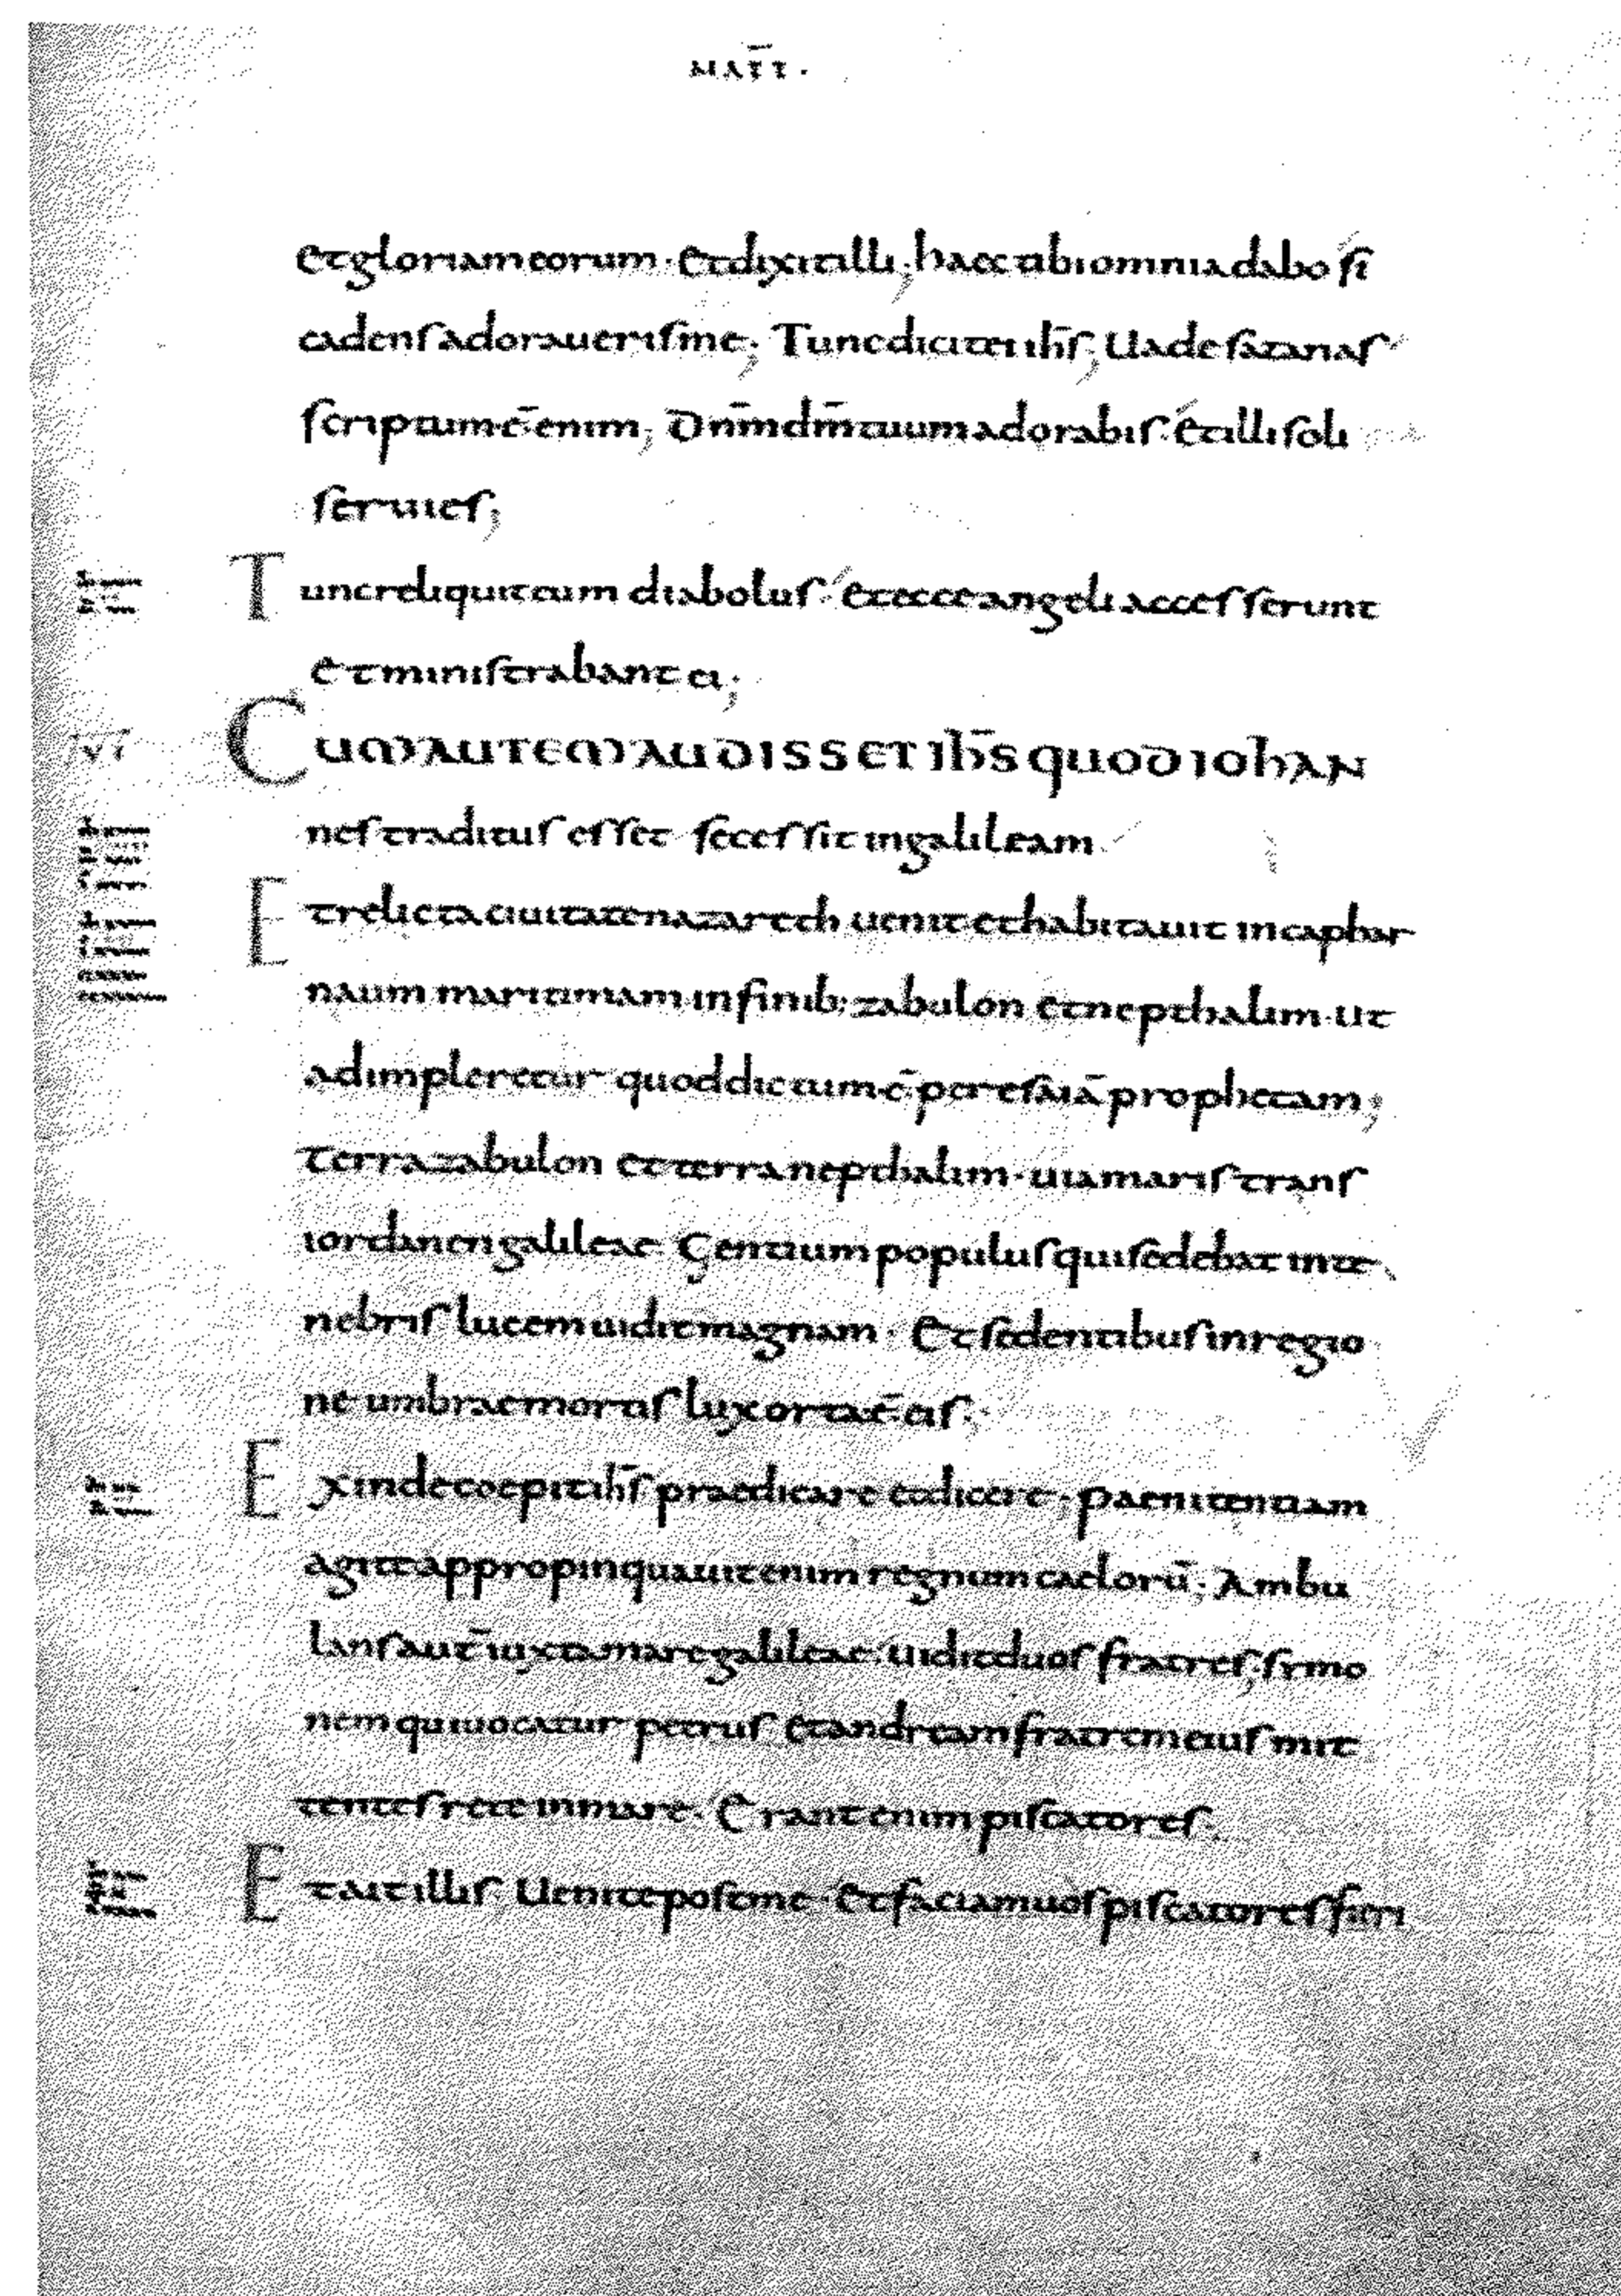 MAT̅T·
et gloriam eorum · Et dixit illi; haec tibi omnia dabo si
cadens adoraueris me; Tunc dicit ei ih̅s; Uade satanas
scriptum e̅ enim; Dn̅m dm̅ tuum adorabis · Et illi soli
seruies;
Tunc reliquit eum diabolus · Et ecce angeli accesserunt
et ministrabant ei;
VI
CUM AUTEM AUDISSET IH̅S QUOD IOHAN
nes traditus esset secessit in galileam
Et relicta ciuitate nazareth uenit et habitauit in caphar
naum maritimam in finib; zabulon et nepthalim · Ut
adimpleretur quod dictum e̅ per esaia̅ prophetam;
Terra zabulon et terra nepthalim · uia maris trans
iordanen galileae Gentium populus qui sedebat in te
nebris lucem uidit magnam · Et sedentibus in regio
ne umbrae mortis lux orta e̅ eis ·
Exinde coepit ih̅s praedicare et dicere; Paenitentiam
agite appropinquauit enim regnum caeloru̅; Ambu
lans aut̅ iuxta mare galileae · Uidit duos fratres; symo
nem qui uocatur petrus et andream fratrem eius mit
tentes rete in mare · Erant enim piscatores ·
Et ait illis · Uenite post me · Et faciam uos piscatores fieri